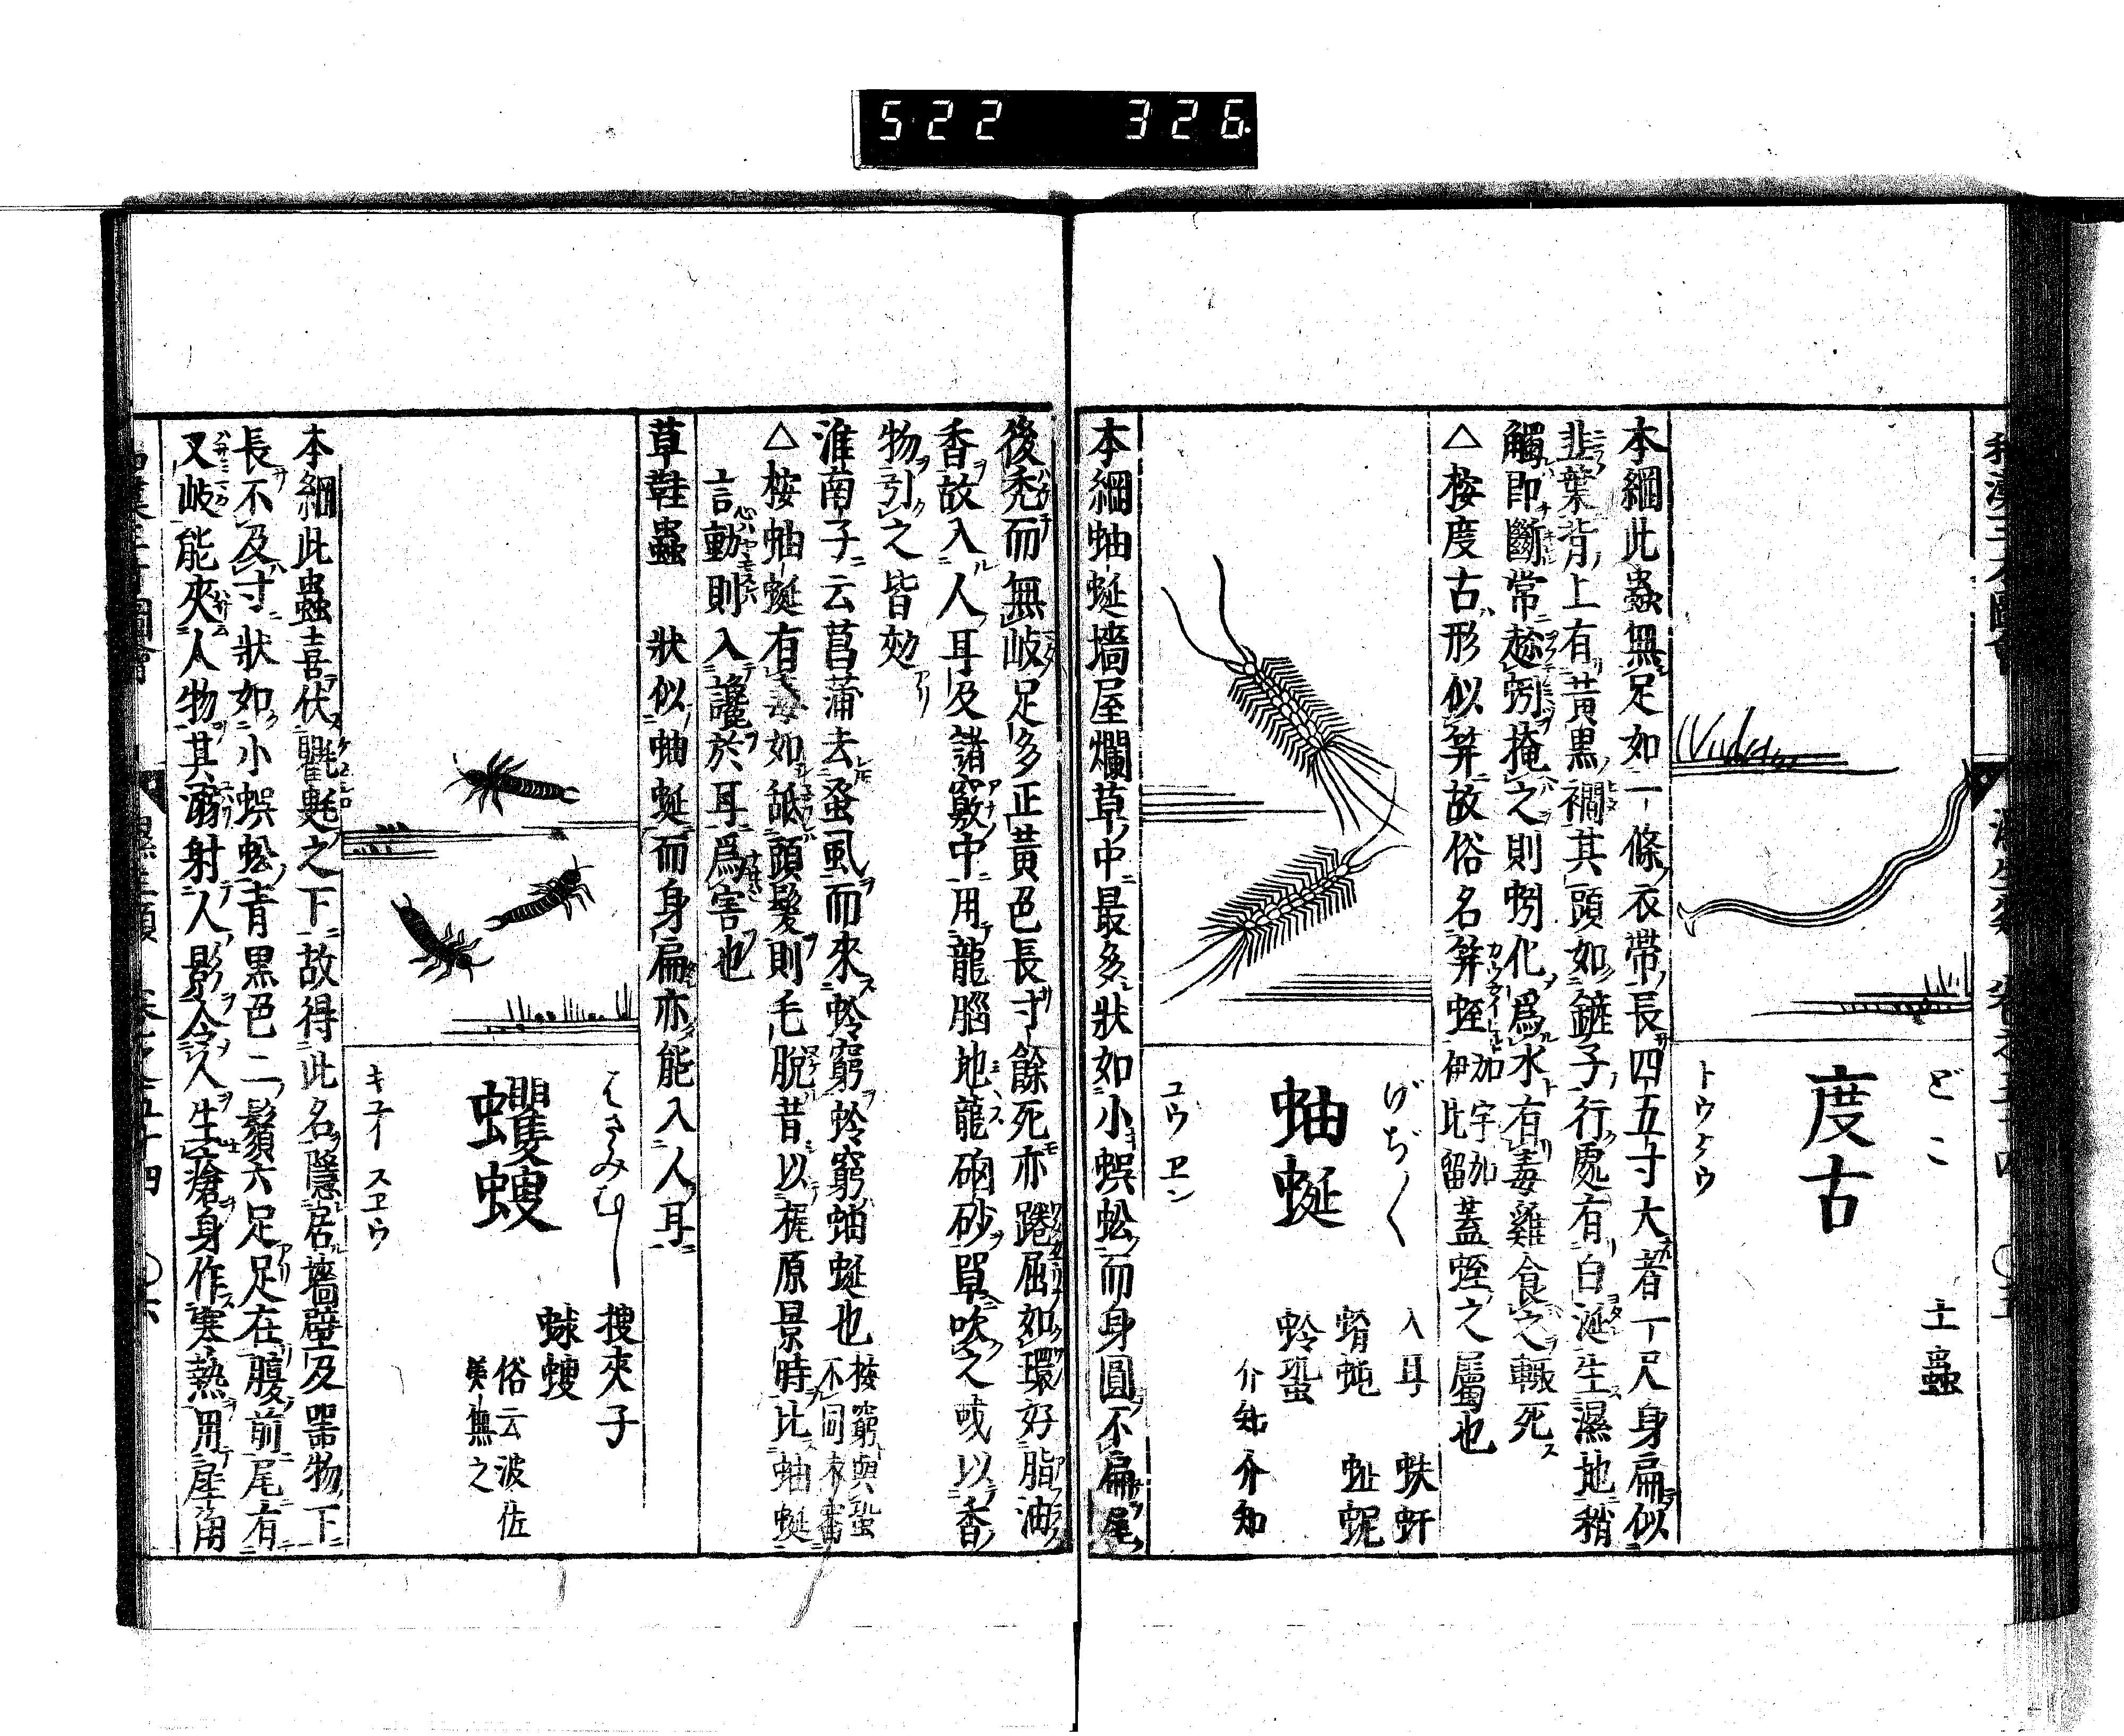 522 326
どこ
度古
トウクウ
土蟲
本綱此蟲無足如一條衣帶長四五寸大者一尺身扁似
韭葉背上有黃黑襉其頭如鏟子行處有白涎生濕地稍
觸即斷常趂蚓掩之則蚓化爲水有毒雞食之輙死
△桉度古形似笄故俗名笄蛭加宇加伊比留蓋蛭之屬也
げぢ〱
蚰蜒
ユウ ヱン
入耳 蚨虷
蝖𧉧 蚭
蛉蛩
介知介知
本綱蚰蜒墻屋爛草中最多狀如小蜈蚣而身圓不扁尾
後禿而無岐足多正黃色長寸餘死亦踡屈如環好脂油
香故入人耳及諸竅中用龍腦地龍硇砂單吹之或以香
物引之皆効
淮南子云菖蒲去蚤虱而來蛉窮蛉窮蚰蜒也按窮與蛩不同未審
△桉蚰蜒有毒如舐頭髮則毛脫昔以梶原景時比蚰蜒
言動則入讒於耳爲害也
草鞋蟲 狀似蚰蜒而身扁亦能入人耳
はさみむし
蠼螋
キユイ スヱウ
搜夾子
蛷螋
俗云波佐
美無之
本綱此蟲喜伏氍毹之下故得此名隱居墻壁及器物下
長不及寸狀如小蜈蚣青黑色二鬚六足足在腹前尾有
叉岐能夾人物其溺射人影令人生瘡身作寒熱用犀角